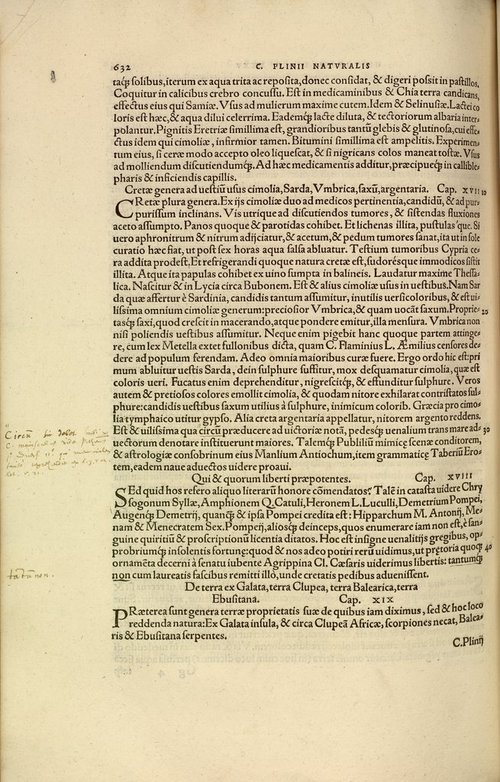 632 C. PLINII NATVRALIS
tacq́ꝫ solibus, iterum ex aqua trita ac reposita, donec considat, & digeri possit in pastillos.
Coquitur in calicibus crebro concussu. Est in medicaminibus & Chia terra candicans,
effectus eius qui Samiæ. Vsus ad mulierum maxime cutem. Idem & Selinusiæ. Lactei co
loris est hæc, & aqua dilui celerrima. Eademq́ꝫ lacte diluta, & tectoriorum albaria inter-
polantur. Pignitis Eretriæ simillima est, grandioribus tantū glebis & glutinosa, cui effe-
ctus idem qui cimoliæ, infirmior tamen. Bitumini simillima est ampelitis. Experimen-
tum eius, si ceræ modo accepto oleo liquescat, & si nigricans colos maneat tostæ. Vsus
ad molliendum discutiendumq́ꝫ. Ad hæc medicamentis additur, præcipueq́ꝫ in callible-
pharis & inficiendis capillis.
Cretæ genera ad uestiū usus cimolia, Sarda, Vmbrica, saxū, argentaria. Cap. XVII 10
CRetæ plura genera. Ex ijs cimoliæ duo ad medicos pertinentia, candidū, & ad pur-
purissum inclinans. Vis utrique ad discutiendos tumores, & sistendas fluxiones
aceto assumpto. Panos quoque & parotidas cohibet. Et lichenas illita, pustulas´que. Si
uero aphronitrum & nitrum adijciatur, & acetum, & pedum tumores sanat, ita ut in sole
curatio hæc fiat, ut post sex horas aqua salsa abluatur. Testium tumoribus Cypria ce-
ra addita prodest. Et refrigerandi quoque natura cretæ est, sudorésque immodicos sistit
illita. Atque ita papulas cohibet ex uino sumpta in balineis. Laudatur maxime Thessa-
lica. Nascitur & in Lycia circa Bubonem. Est & alius cimoliæ usus in uestibus. Nam Sar
da quæ affertur è Sardinia, candidis tantum assumitur, inutilis uersicoloribus, & est ui-
lissima omnium cimoliæ generum: preciosior Vmbrica, & quam uocāt saxum. Proprie- 20
tasq́ꝫ saxi, quod crescit in macerando, atque pondere emitur, illa mensura. Vmbrica non
nisi poliendis uestibus assumitur. Neque enim pigebit hanc quoque partem attinge-
re, cum lex Metella extet fullonibus dicta, quam C. Flaminius L. Æmilius censores de-
dere ad populum ferendam. Adeo omnia maioribus curæ fuere. Ergo ordo hic est: pri
mum abluitur uestis Sarda, dein sulphure suffitur, mox desquamatur cimolia, quæ est
coloris ueri. Fucatus enim deprehenditur, nigrescitq́ꝫ, & effunditur sulphure. Veros
autem & pretiosos colores emollit cimolia, & quodam nitore exhilarat contristatos sul-
phure: candidis uestibus saxum utilius à sulphure, inimicum colorib. Græcia pro cimo-
lia tymphaico utitur gypso. Alia creta argentaria appellatur, nitorem argento reddens.
Est & uilissima qua circū præducere ad uictoriæ notā, pedesq́ꝫ uenalium trans mare ad- 30
uectorum denotare instituerunt maiores. Talemq́ꝫ Publiliū mimicę scenæ conditorem,
& astrologiæ consobrinum eius Manlium Antiochum, item grammaticę Taberiū Ero-
tem, eadem naue aduectos uidere proaui.
Qui & quorum liberti præpotentes. Cap. XVIII
SEd quid hos refero aliquo literarū honore cōmendatos? Talē in catasta uidere Chry
sogonum Syllæ, Amphionem Q. Catuli, Heronem L. Luculli, Demetrium Pompei,
Augenq́ꝫ Demetrij, quanq̄ & ipsa Pompei credita est: Hipparchum M. Antonij, Me-
nam & Menecratem Sex. Pompeij, aliosq́ꝫ deinceps, quos enumerare iam non est, è san-
guine quiritiū & proscriptionū licentia ditatos. Hoc est insigne uenalitijs gregibus, op-
probriumq́ꝫ insolentis fortunę: quod & nos adeo potiri rerū uidimus, ut prętoria quoq́ꝫ 40
ornamēta decerni à senatu iubente Agrippina Cl. Cæsaris uiderimus libertis: tantumq́ꝫ
non cum laureatis fascibus remitti illò, unde cretatis pedibus aduenissent.
De terra ex Galata, terra Clupea, terra Balearica, terra
Ebusitana. Cap. XIX
PRæterea sunt genera terræ proprietatis suæ de quibus iam diximus, sed & hoc loco
reddenda natura: Ex Galata insula, & circa Clupeā Africæ, scorpiones necat, Balea-
ris & Ebusitana serpentes.
C. Plinij